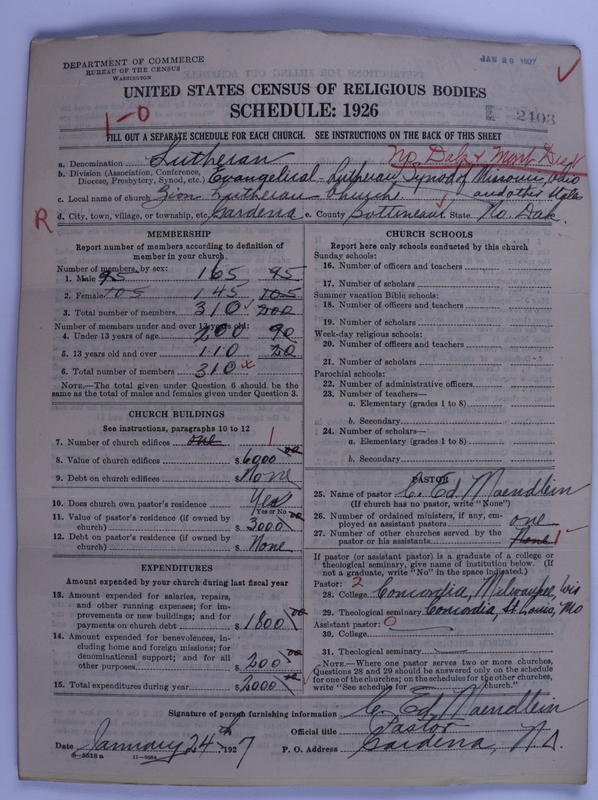 DEPARTMENT OF COMMERCE
BUREAU OF THE CENSUS
WASHINGTON
JAN 26 1927
UNITED STATES CENSUS OF RELIGIOUS BODIES
SCHEDULE: 1926
2403
1-0
FILL OUT A SEPARATE SCHEDULE FOR EACH CHURCH. SEE INSTRUCTIONS ON THE BACK OF THIS SHEET
No. Dak & Mont Dist
a. Denomination Lutheran
b. Division (Association, Conference, Diocese, Presbytery, Synod, etc.) Evangelical-Lutheran Synod of Missouri, Ohio and other States
c. Local name of church Zion Lutheran Church
R
d. City, town, village, or township, etc. Gardena e. County Bottineau State No. Dak.
MEMBERSHIP
Report number of members according to definition of member in your church
Number of members, by sex:
1. Male 95 165 95
2. Female 105 145 105
3. Total number of members 310 200
Number of members under and over 13 years old:
4. Under 13 years of age 200 90
5. 13 years old and over 110 20
6. Total number of members 310 x
NOTE.—The total given under Question 6 should be the same as the total of males and females given under Question 3.
CHURCH BUILDINGS
See instructions, paragraphs 10 to 12
7. Number of church edifices one 1
8. Value of church edifices $6000 00
9. Debt on church edifices $None
10. Does church own pastor's residence Yes
Yes or No
11. Value of pastor's residence (if owned by church) $3000 00
12. Debt on pastor's residence (if owned by church) None
EXPENDITURES
Amount expended by your church during last fiscal year
13. Amount expended for salaries, repairs, and other running expenses; for improvements or new buildings; and for payments on church debt $1800 00
14. Amount expended for benevolences, including home and foreign missions; for denominational support; and for all other purposes $200 00
15. Total expenditures during year $2000
CHURCH SCHOOLS
Report here only schools conducted by this church
Sunday schools:
16. Number of officers and teachers
17. Number of scholars
Summer vacation Bible schools:
18. Number of officers and teachers
19. Number of scholars
Week-day religious schools:
20. Number of officers and teachers
21. Number of scholars
Parochial schools:
22. Number of administrative officers
23. Number of teachers—
a. Elementary (grades 1 to 8)
b. Secondary
24. Number of scholars—
a. Elementary (grades 1 to 8)
b. Secondary
PASTOR
25. Name of pastor C. Ed. Maendlein
(If church has no pastor, write "None")
26. Number of ordained ministers, if any, employed as assistant pastors one
27. Number of other churches served by the pastor or his assistants None 1
If pastor (or assistant pastor) is a graduate of a college or theological seminary, give name of institution below. (If not a graduate, write "No" in the space indicated.)
Pastor: 2
28. College Concordia, Milwaukee, Wis
29. Theological seminary Concordia, St. Louis, Mo
Assistant pastor: 0
30. College
31. Theological seminary
NOTE.—Where one pastor serves two or more churches, Questions 28 and 29 should be answered only on the schedule for one of the churches; on the schedules for the other churches, write "See schedule for church."
Signature of person furnishing information C. Ed. Maendlein
Official title Pastor
Date January 24th, 1927
P. O. Address Gardena, N.D.
8-5518a
11-9084